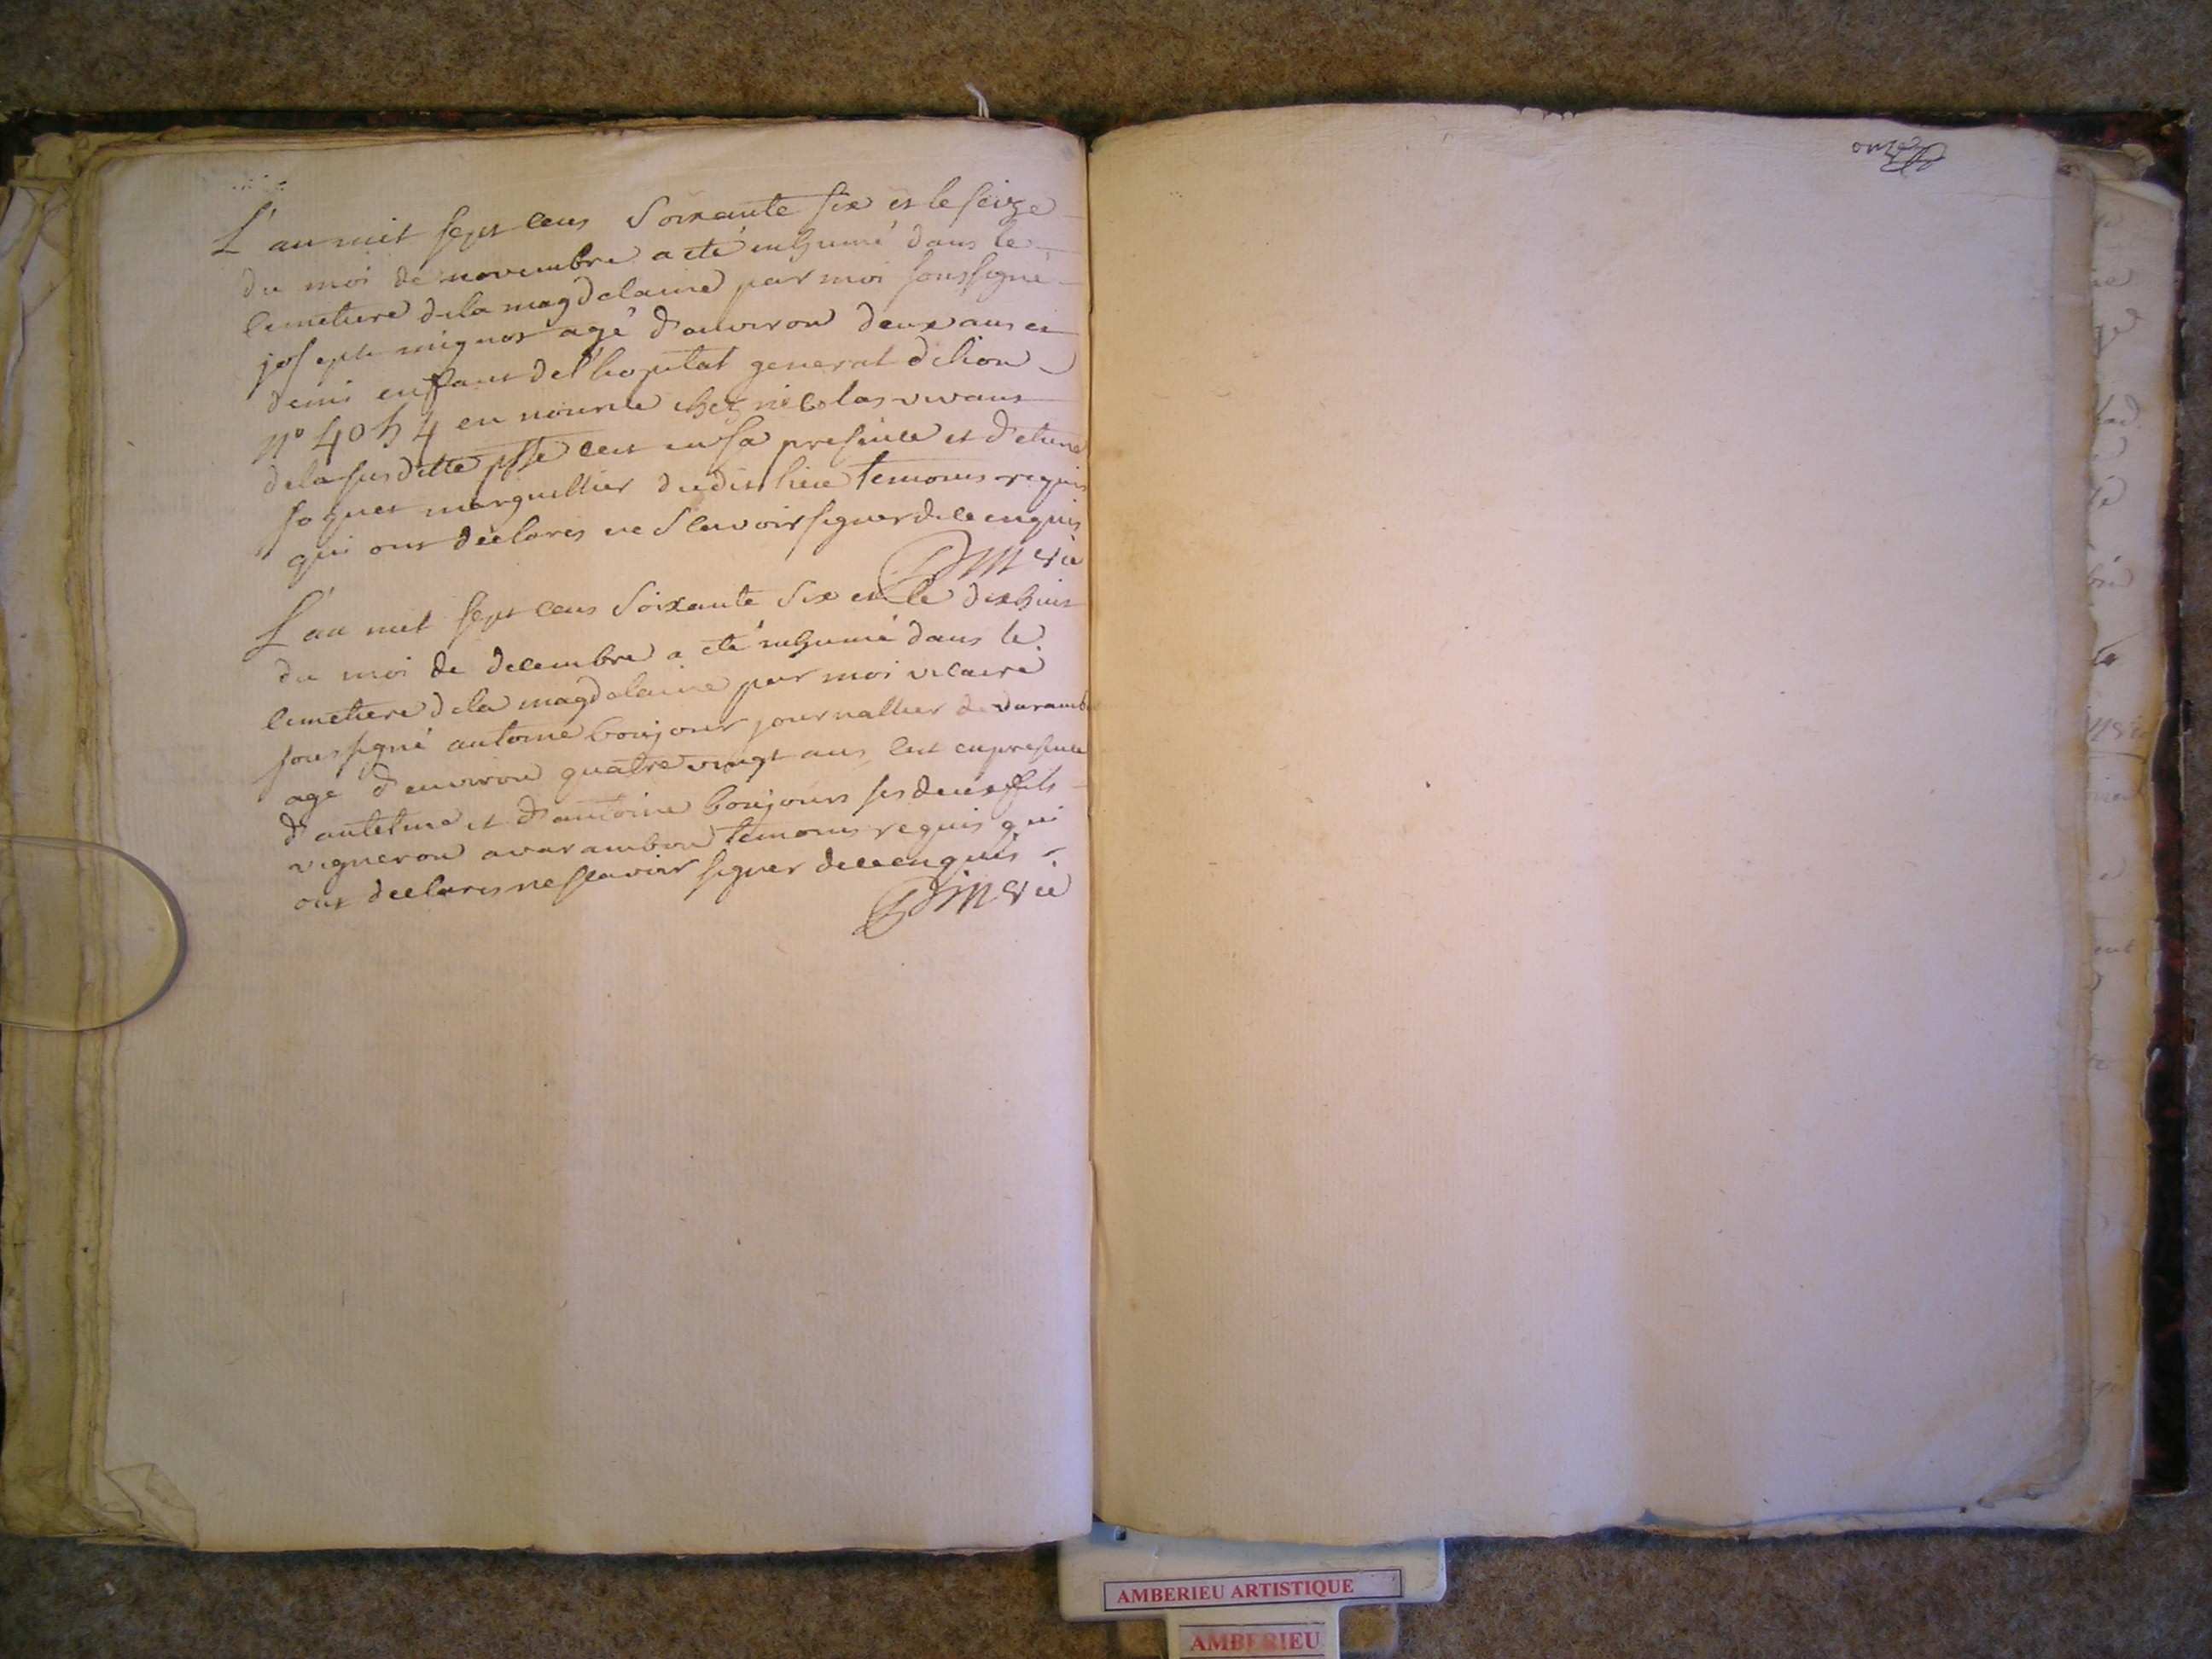 L'an mil sept cens Soixante six et le seize
du mois de novembre a eté inhumé dans le
cimetiere de la magdelaine par moi soussigné
joseph mignot agé d'anviron deux ans et
demi enfant de l'hopital general de lion
n° 4054 en nourrice chez nicolas vivant
de la susditte psse cest en sa presence et d'etienne
marguillier dudit lieu temoins requis
qui ont déclarés ne scavoir signer de ce enquis
L'an mil sept cens Soixante Six et le dix huit
du mois de decembre a eté inhumé dans le
cimetiere de la magdelaine par moi vicaire
soussigné antoine boujour journallier de varambon
agé d'environ quatre vingt ans, cest en presence
d'antelme et d'antoine boujours ses deux fils
vigneron a varambon temoins requis qui
ont declarés ne scavoir signer de ce enquis
onze
AMBERIEU ARTISTIQUE
AMBERIEU